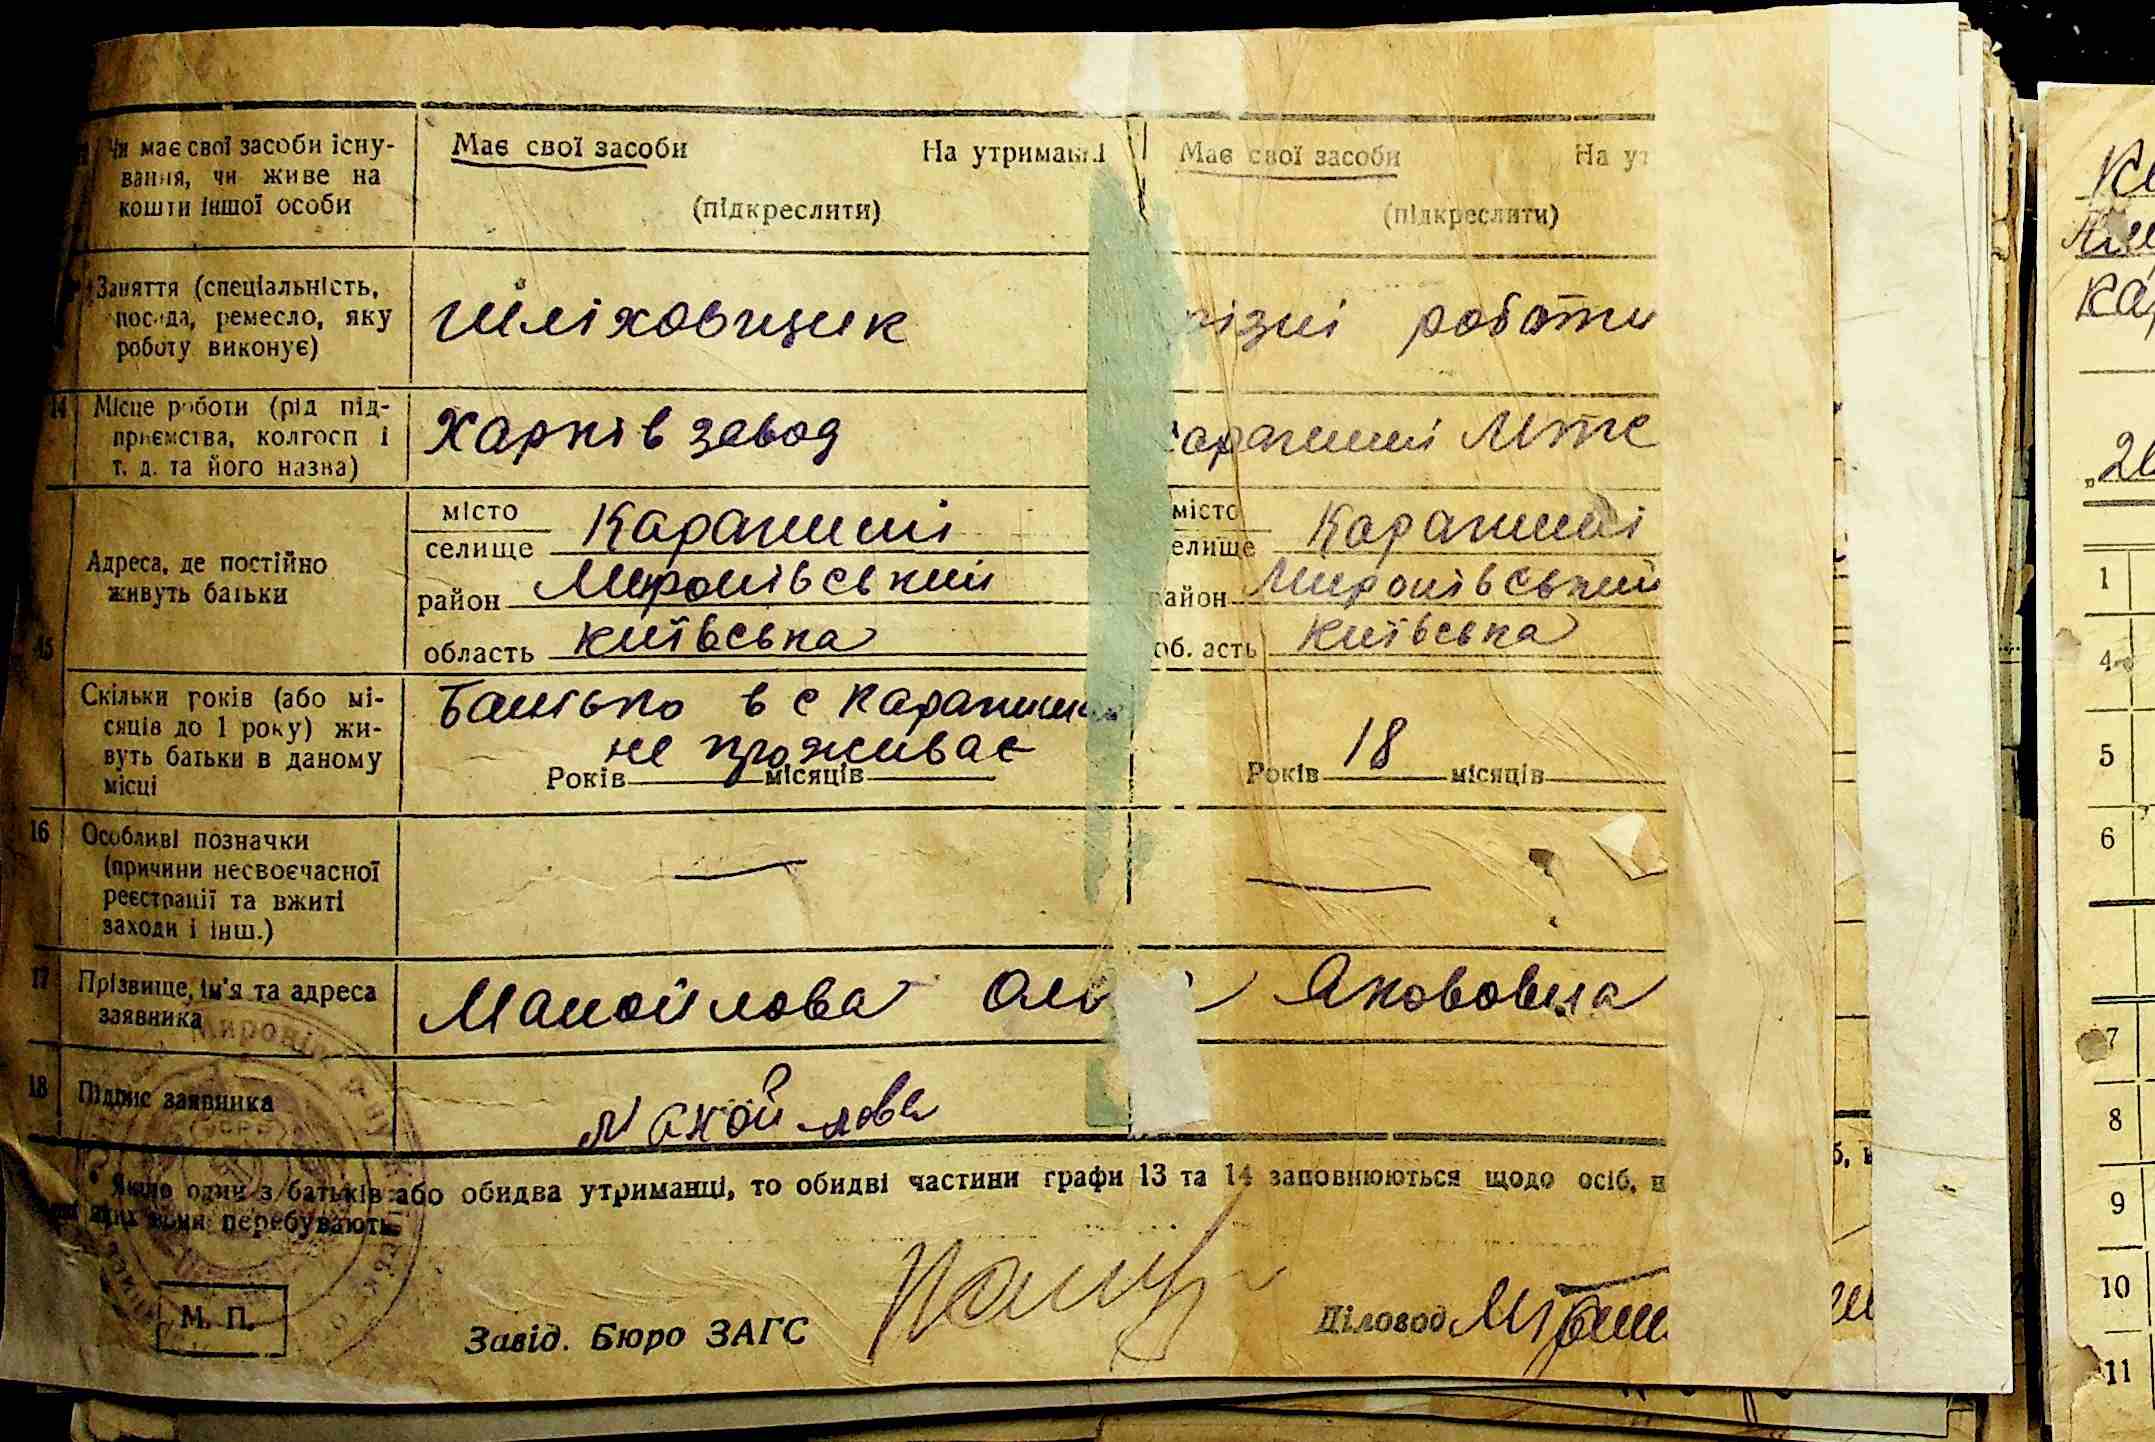 Чи має свої засоби існу-
вання, чи живе на
кошти іншої особи
Має свої засоби На утриманні
(підкреслити)
Має свої засоби На ут
(підкреслити)
Заняття (спеціальність,
посада, ремесло, яку
роботу виконує)
Шліховщик
різні роботи
14 Місце роботи (рід під-
приємства, колгосп і
т. д. та його назва)
Харків завод
Карапиші
15 Адреса, де постійно
живуть батьки
місто
селище Карапиші
район Миронівський
область Київська
місто
селище Карапиші
район Миронівський
область Київська
Скільки років (або мі-
сяців до 1 року) жи-
вуть батьки в даному
місці
Батько в с Карапиші
не проживає
Років місяців
Років 18 місяців
16 Особливі позначки
(причини несвоєчасної
реєстрації та вжиті
заходи і інш.)
17 Прізвище, ім'я та адреса
заявника
Манойлова Якововна
18 Підпис заявника
Манойлова
* Якщо один з батьків або обидва утриманці, то обидві частини графи 13 та 14 заповнюються щодо осіб, н
яких вони перебувають.
М. П.
Завід. Бюро ЗАГС
Діловод
1
4
5
6
7
8
9
10
11